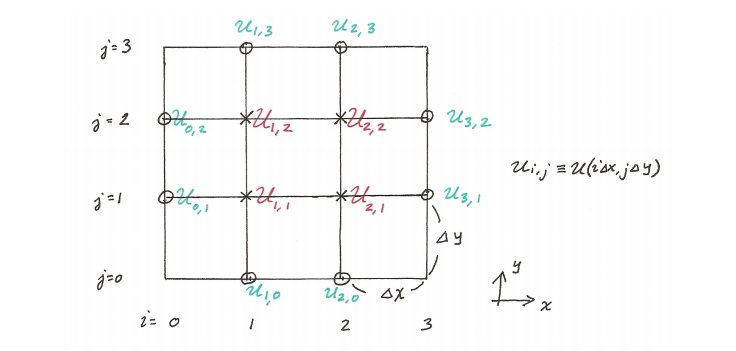 u1,3 u2,3
j=3
j=2 u0,2 u1,2 u2,2 u3,2
ui,j ≡ u(iΔx, jΔy)
j=1 u0,1 u1,1 u2,1 u3,1
Δy
j=0
u1,0 u2,0 Δx
y
x
i= 0 1 2 3